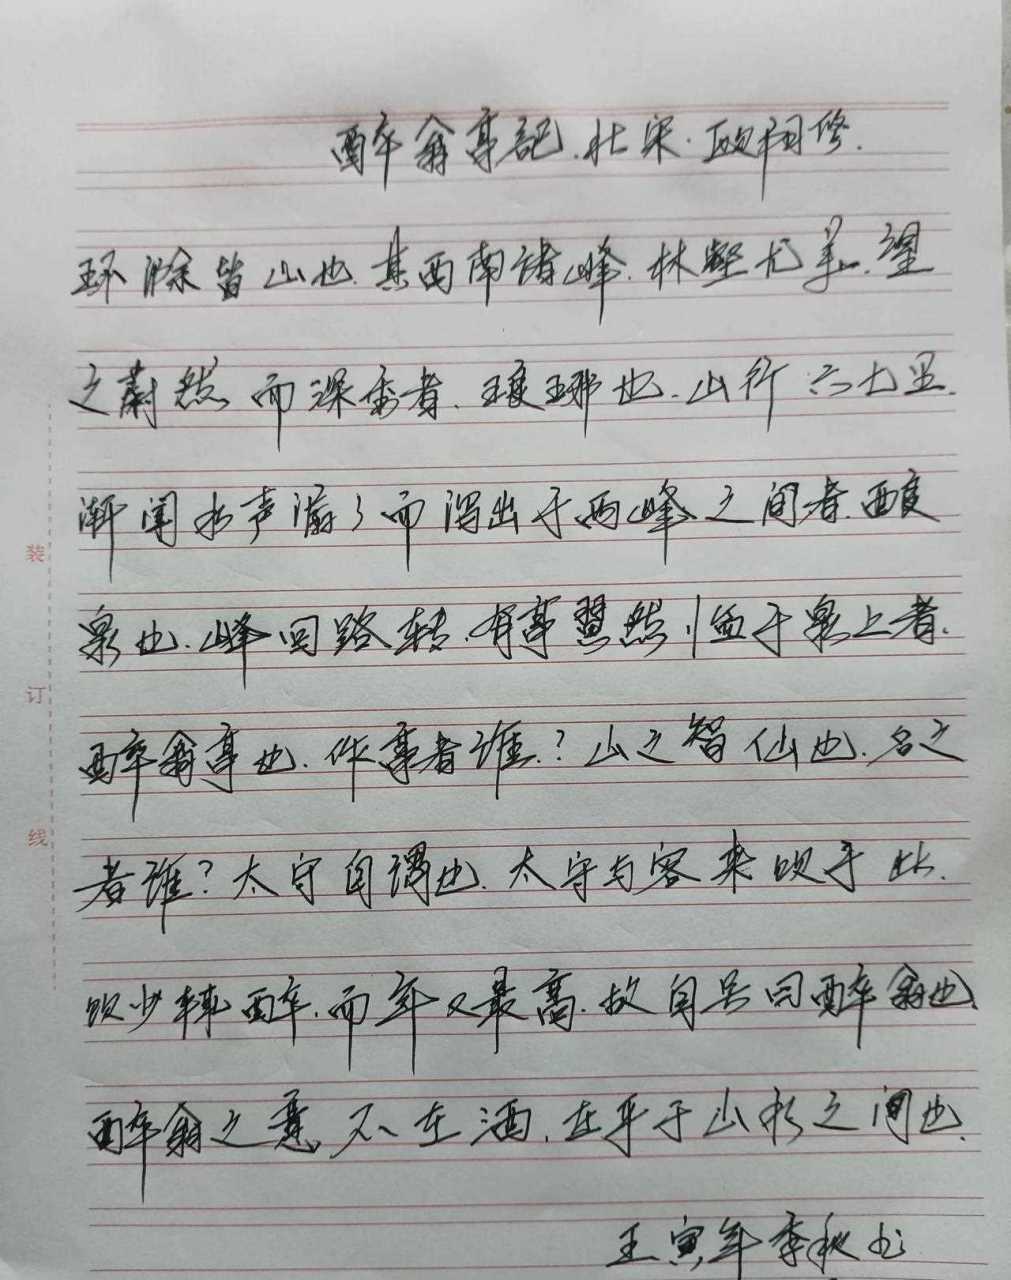 醉翁亭記.北宋.欧阳修.
环滁皆山也.其西南诸峰.林壑尤美.望
之蔚然而深秀者.琅琊也.山行六七里.
渐闻水声潺々而泻出于两峰之间者.酿
泉也.峰回路转.有亭翼然临于泉上者.
醉翁亭也.作亭者谁?山之智仙也.名之
者谁?太守自谓也.太守与客来饮于此.
饮少辄醉.而年又最高.故自号曰醉翁也.
醉翁之意不在酒.在乎于山水之间也.
壬寅年季秋书
装
订
线